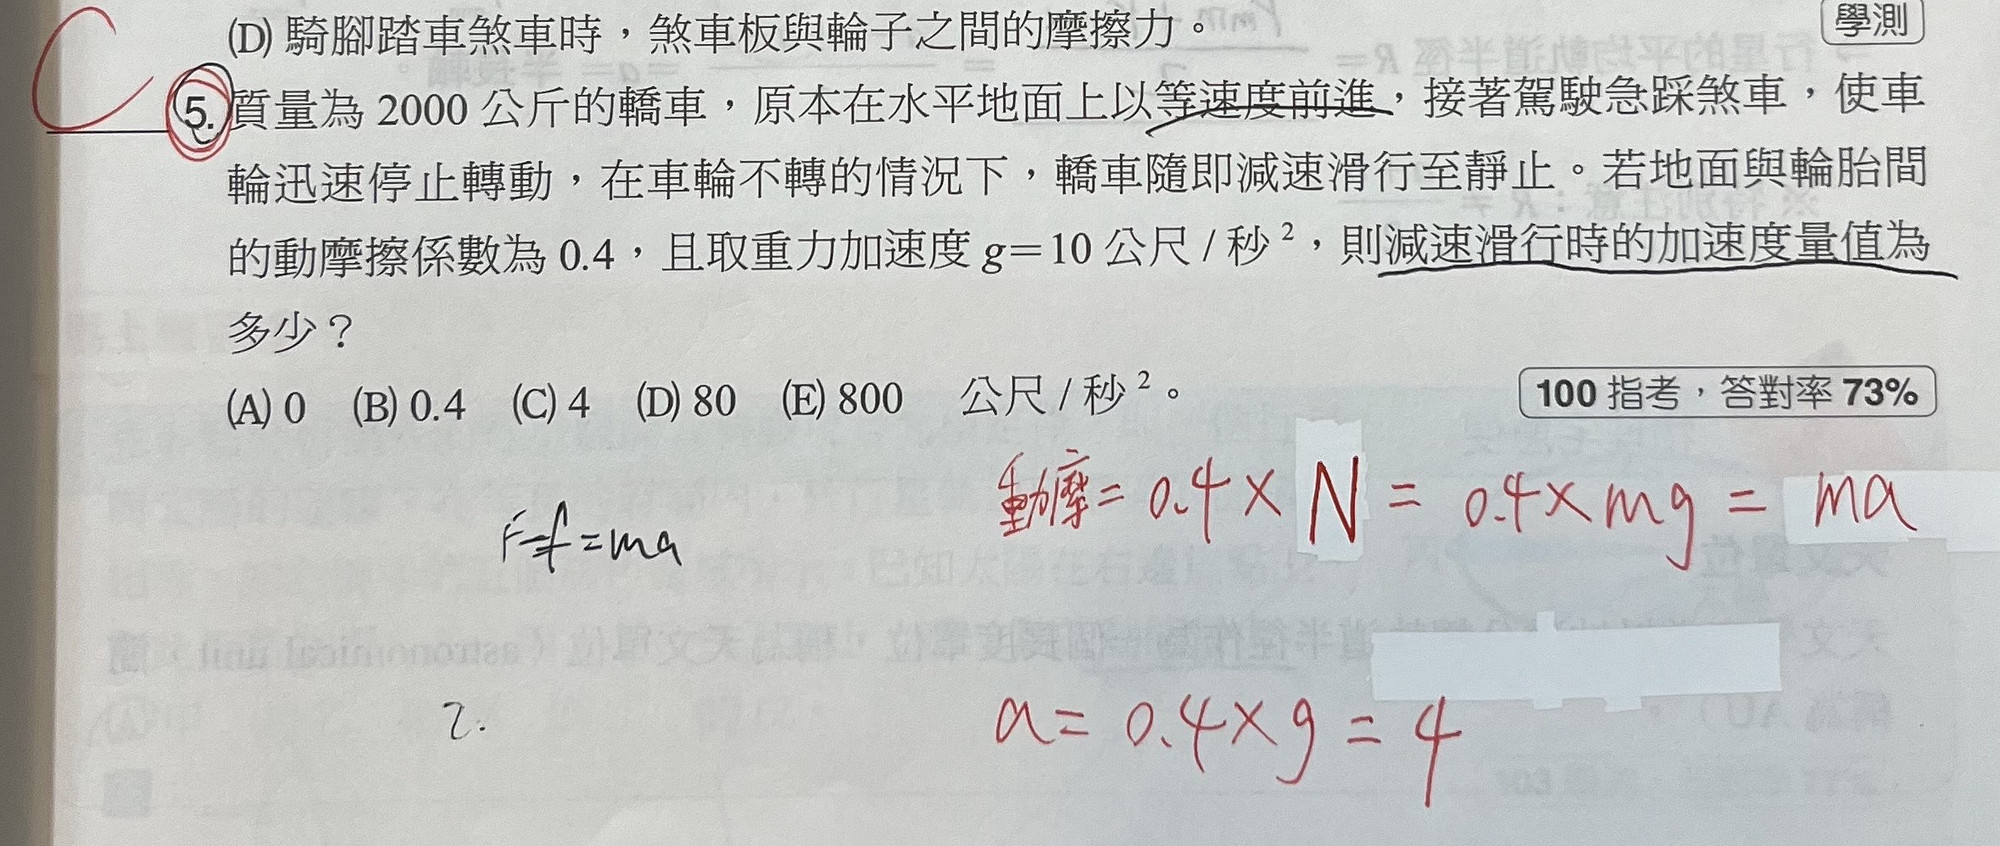 (D) 騎腳踏車煞車時，煞車板與輪子之間的摩擦力。
學測
C
5. 質量為 2000 公斤的轎車，原本在水平地面上以等速度前進，接著駕駛急踩煞車，使車
輪迅速停止轉動，在車輪不轉的情況下，轎車隨即減速滑行至靜止。若地面與輪胎間
的動摩擦係數為 0.4，且取重力加速度 g=10 公尺 / 秒²，則減速滑行時的加速度量值為
多少？
(A) 0 (B) 0.4 (C) 4 (D) 80 (E) 800 公尺 / 秒²。
100 指考，答對率 73%
動摩= 0.4 × N = 0.4 × mg = ma
F-f=ma
a= 0.4 × g = 4